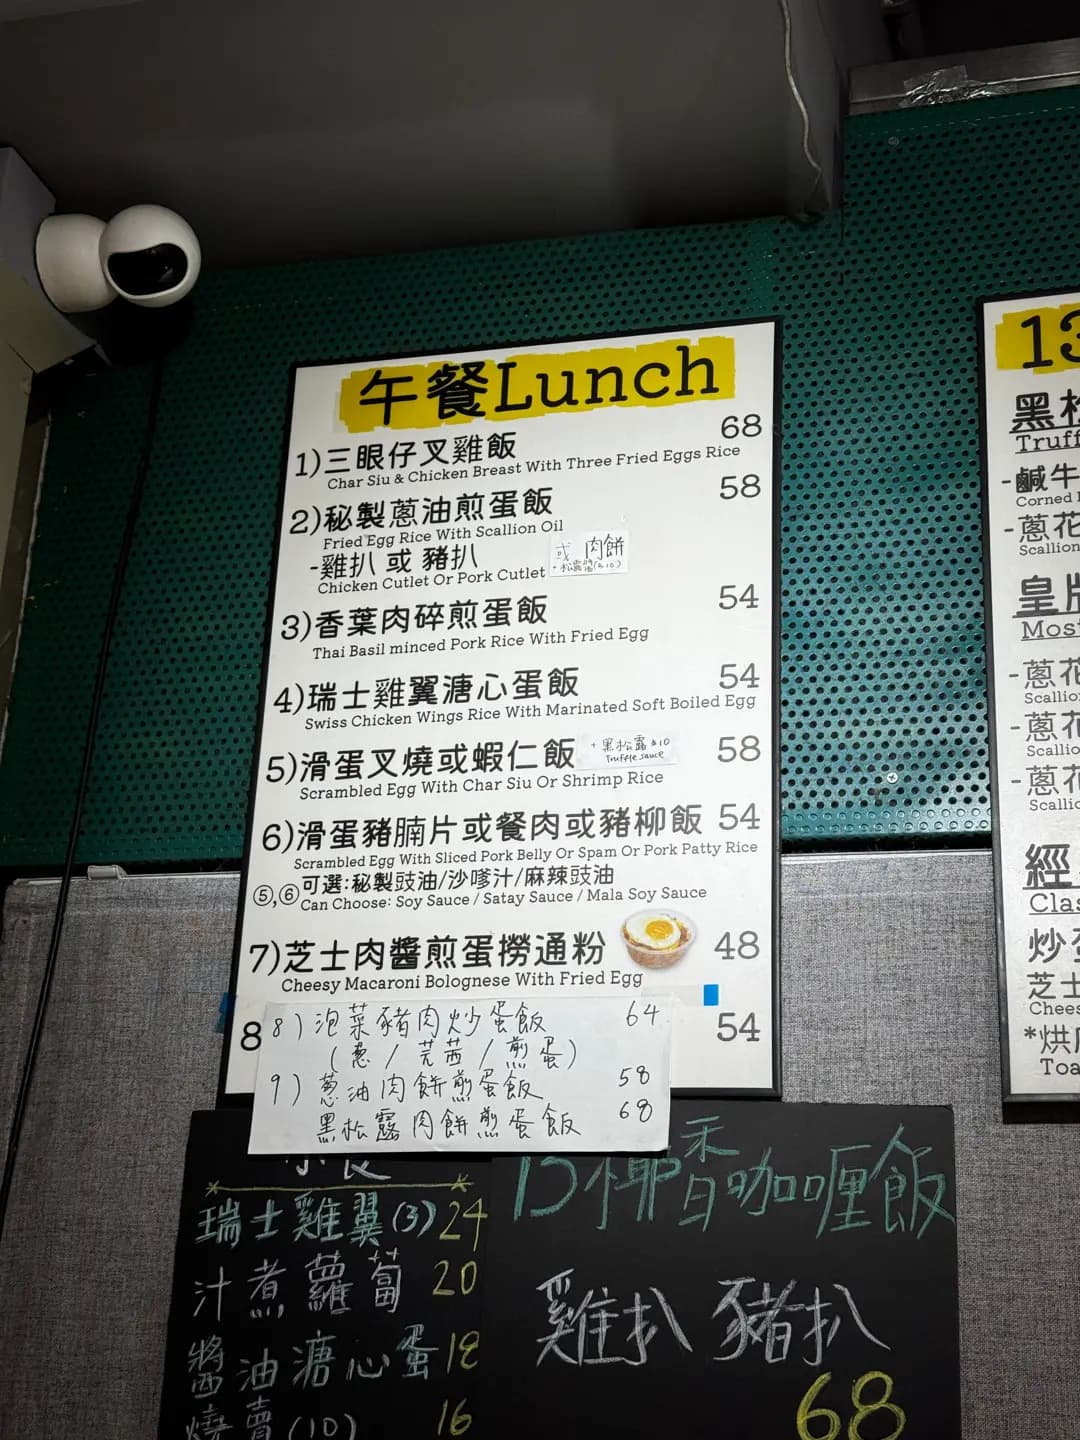 午餐Lunch
1)三眼仔叉雞飯 68
Char Siu & Chicken Breast With Three Fried Eggs Rice
2)秘製蔥油煎蛋飯 58
Fried Egg Rice With Scallion Oil
-雞扒 或 豬扒
Chicken Cutlet Or Pork Cutlet
或 肉餅
+松露醬($10)
3)香葉肉碎煎蛋飯 54
Thai Basil minced Pork Rice With Fried Egg
4)瑞士雞翼溏心蛋飯 54
Swiss Chicken Wings Rice With Marinated Soft Boiled Egg
5)滑蛋叉燒或蝦仁飯 58
+黑松露 $10
Truffle sauce
Scrambled Egg With Char Siu Or Shrimp Rice
6)滑蛋豬腩片或餐肉或豬柳飯 54
Scrambled Egg With Sliced Pork Belly Or Spam Or Pork Patty Rice
⑤,⑥可選:秘製豉油/沙嗲汁/麻辣豉油
Can Choose: Soy Sauce / Satay Sauce / Mala Soy Sauce
7)芝士肉醬煎蛋撈通粉 48
Cheesy Macaroni Bolognese With Fried Egg
8 54
8) 泡菜豬肉炒蛋飯 64
(蔥/芫茜/煎蛋)
9) 蔥油肉餅煎蛋飯 58
黑松露肉餅煎蛋飯 68
瑞士雞翼(3) 24
汁煮蘿蔔 20
醬油溏心蛋 18
燒賣(10) 16
椰香咖喱飯
雞扒 豬扒
68
13
黑松
Truff
-鹹牛
Corned
-蔥花
Scallion
皇牌
Most
-蔥花
Scallio
-蔥花
Scallio
-蔥花
Scallic
經
Clas
炒蛋
芝士
Chees
*烘
Toa